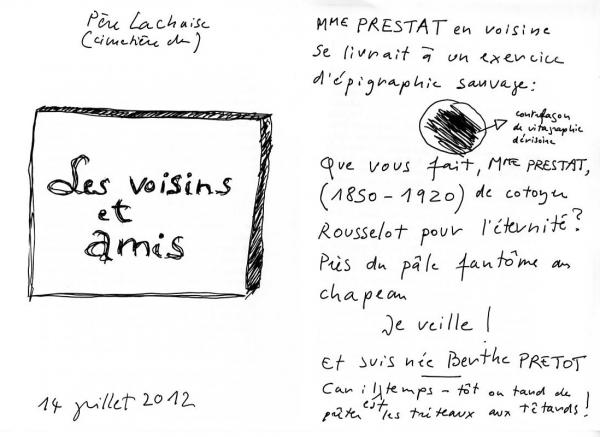 Père Lachaise
(cimetière du)
Les voisins
et
amis
14 juillet 2012
MME PRESTAT en voisine
se livrait à un exercice
d'épigraphie sauvage :
contrefaçon
de vitagraphie
dérisoire
Que vous fait, MME PRESTAT,
(1850-1920) de cotoyer
Rousselot pour l'éternité ?
Près du pâle fantôme au
chapeau
Je veille !
Et suis née Berthe PRETOT
Car il est temps - tôt ou tard de
prêter les tréteaux aux têtards !